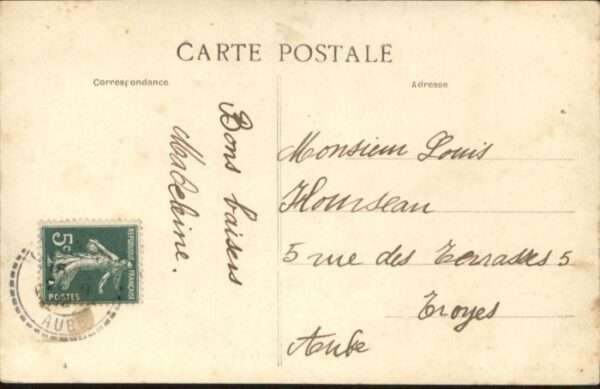 CARTE POSTALE
Correspondance
Adresse
Bons baisers
Madeleine.
Monsieur Louis
5 rue des Terrasses 5
Troyes
Aube
5c
RÉPUBLIQUE FRANÇAISE
POSTES
AUBE